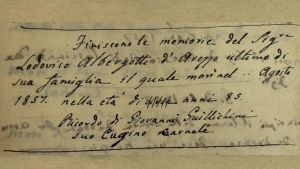 Finiscono le memorie del Sigr
Lodovico Albergotti d'Arezzo ultimo di
sua famiglia il quale morì nel .. Agosto
1857. nella età di anni 85.
Ricordo di Giovanni Guillichini
suo Cugino Carnale